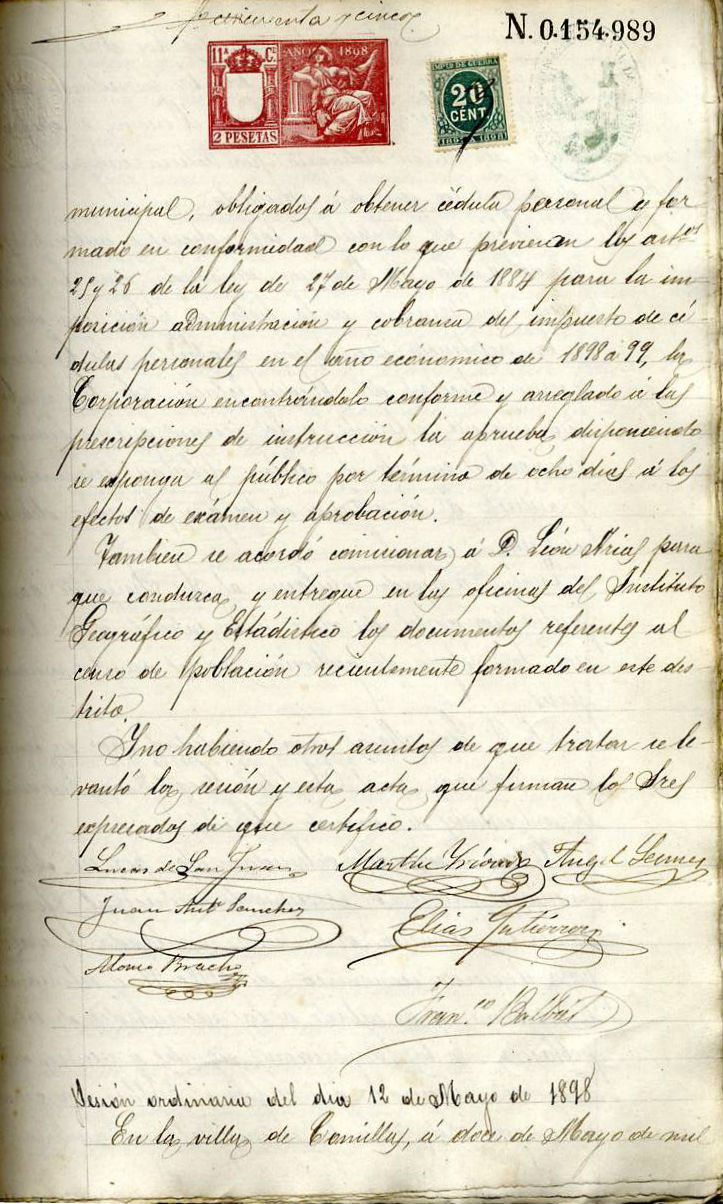 cincuenta y cinco
N. 0.154.989
11ª C.ª AÑO 1898
2 PESETAS
IMPTO DE GUERRA
20
CENT.
1898
municipal, obligados á obtener cédula personal y for
mado en conformidad con lo que previenen los artos
25 y 26 de la ley de 27 de Mayo de 1884 para la im-
posición administración y cobranza del impuesto de cé-
dulas personales en el año económico de 1898 á 99, la
Corporación encontrándolo conforme y arreglado á las
prescripciones de instrucción la aprueba disponiendo
se exponga al público por término de ocho dias á los
efectos de exámen y aprobación.
Tambien se acordó comisionar á D. León Arias para
que conduzca y entregue en las oficinas del Instituto
Geográfico y Estádistico los documentos referentes al
censo de población recientemente formado en este dis-
trito.
Y no habiendo otros asuntos de que tratar se le-
vantó la sesión y esta acta que firman los Sres
expresados de que certifico.
Lucas de San Juan Martin Ángel
Juan Antº Sanchez
Elias Gutiérrez
Alonso Bracho
Fran.co Balbás
Sesión ordinaria del dia 12 de Mayo de 1898
En la villa de Comillas, á doce de Mayo de mil